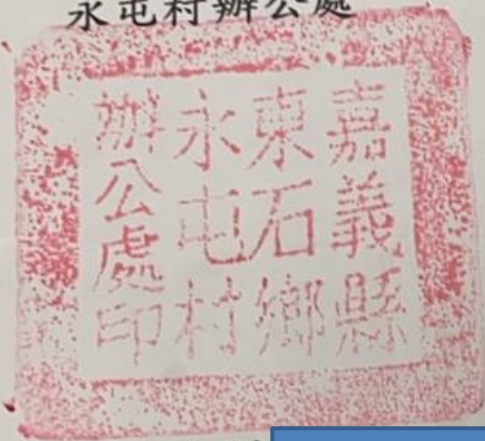 永屯村辦公處
嘉義縣
東石鄉
永屯村
辦公處印